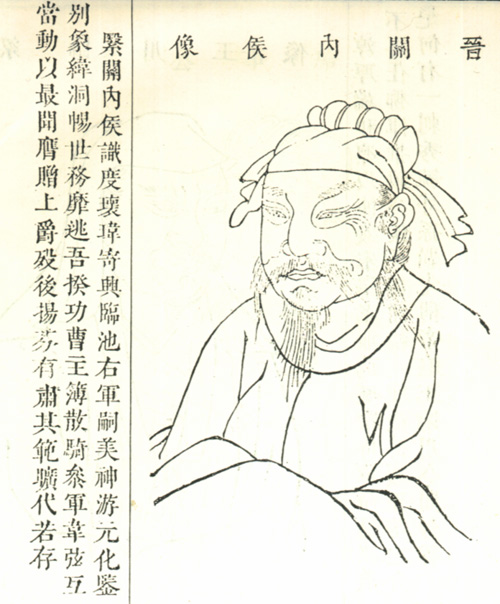 晉關內侯像
繄關內侯識度瓌瑋寄興臨池右軍嗣美神游元化鑒
別象緯洞暢世務靡逃吾揆功曹主簿散騎叅軍韋弦互
當動以最聞膺贈上爵歿後揚芬有肅其範曠代若存